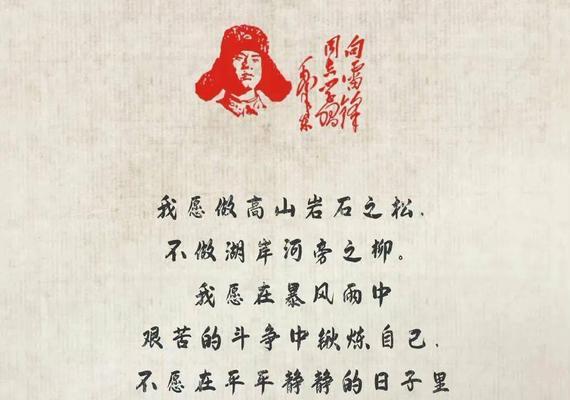 向雷锋
同志学习
毛泽东
我愿做高山岩石之松,
不做湖岸河旁之柳。
我愿在暴风雨中
艰苦的斗争中锻炼自己,
不愿在平平静静的日子里